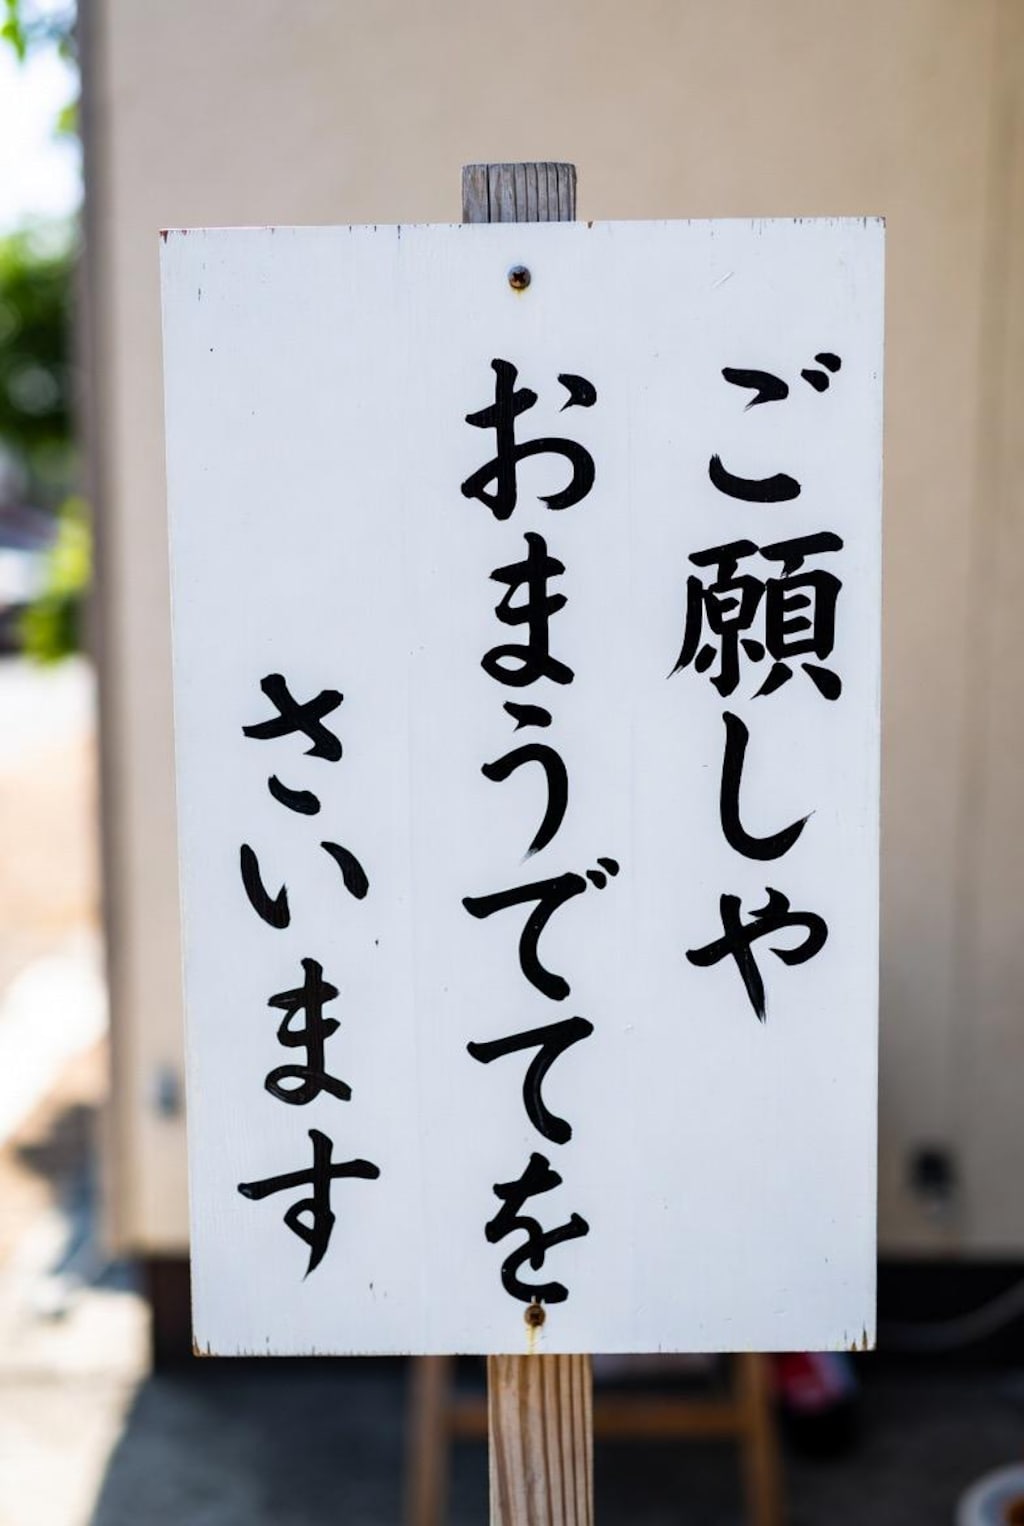 ご願しや
おまうでてを
さいます